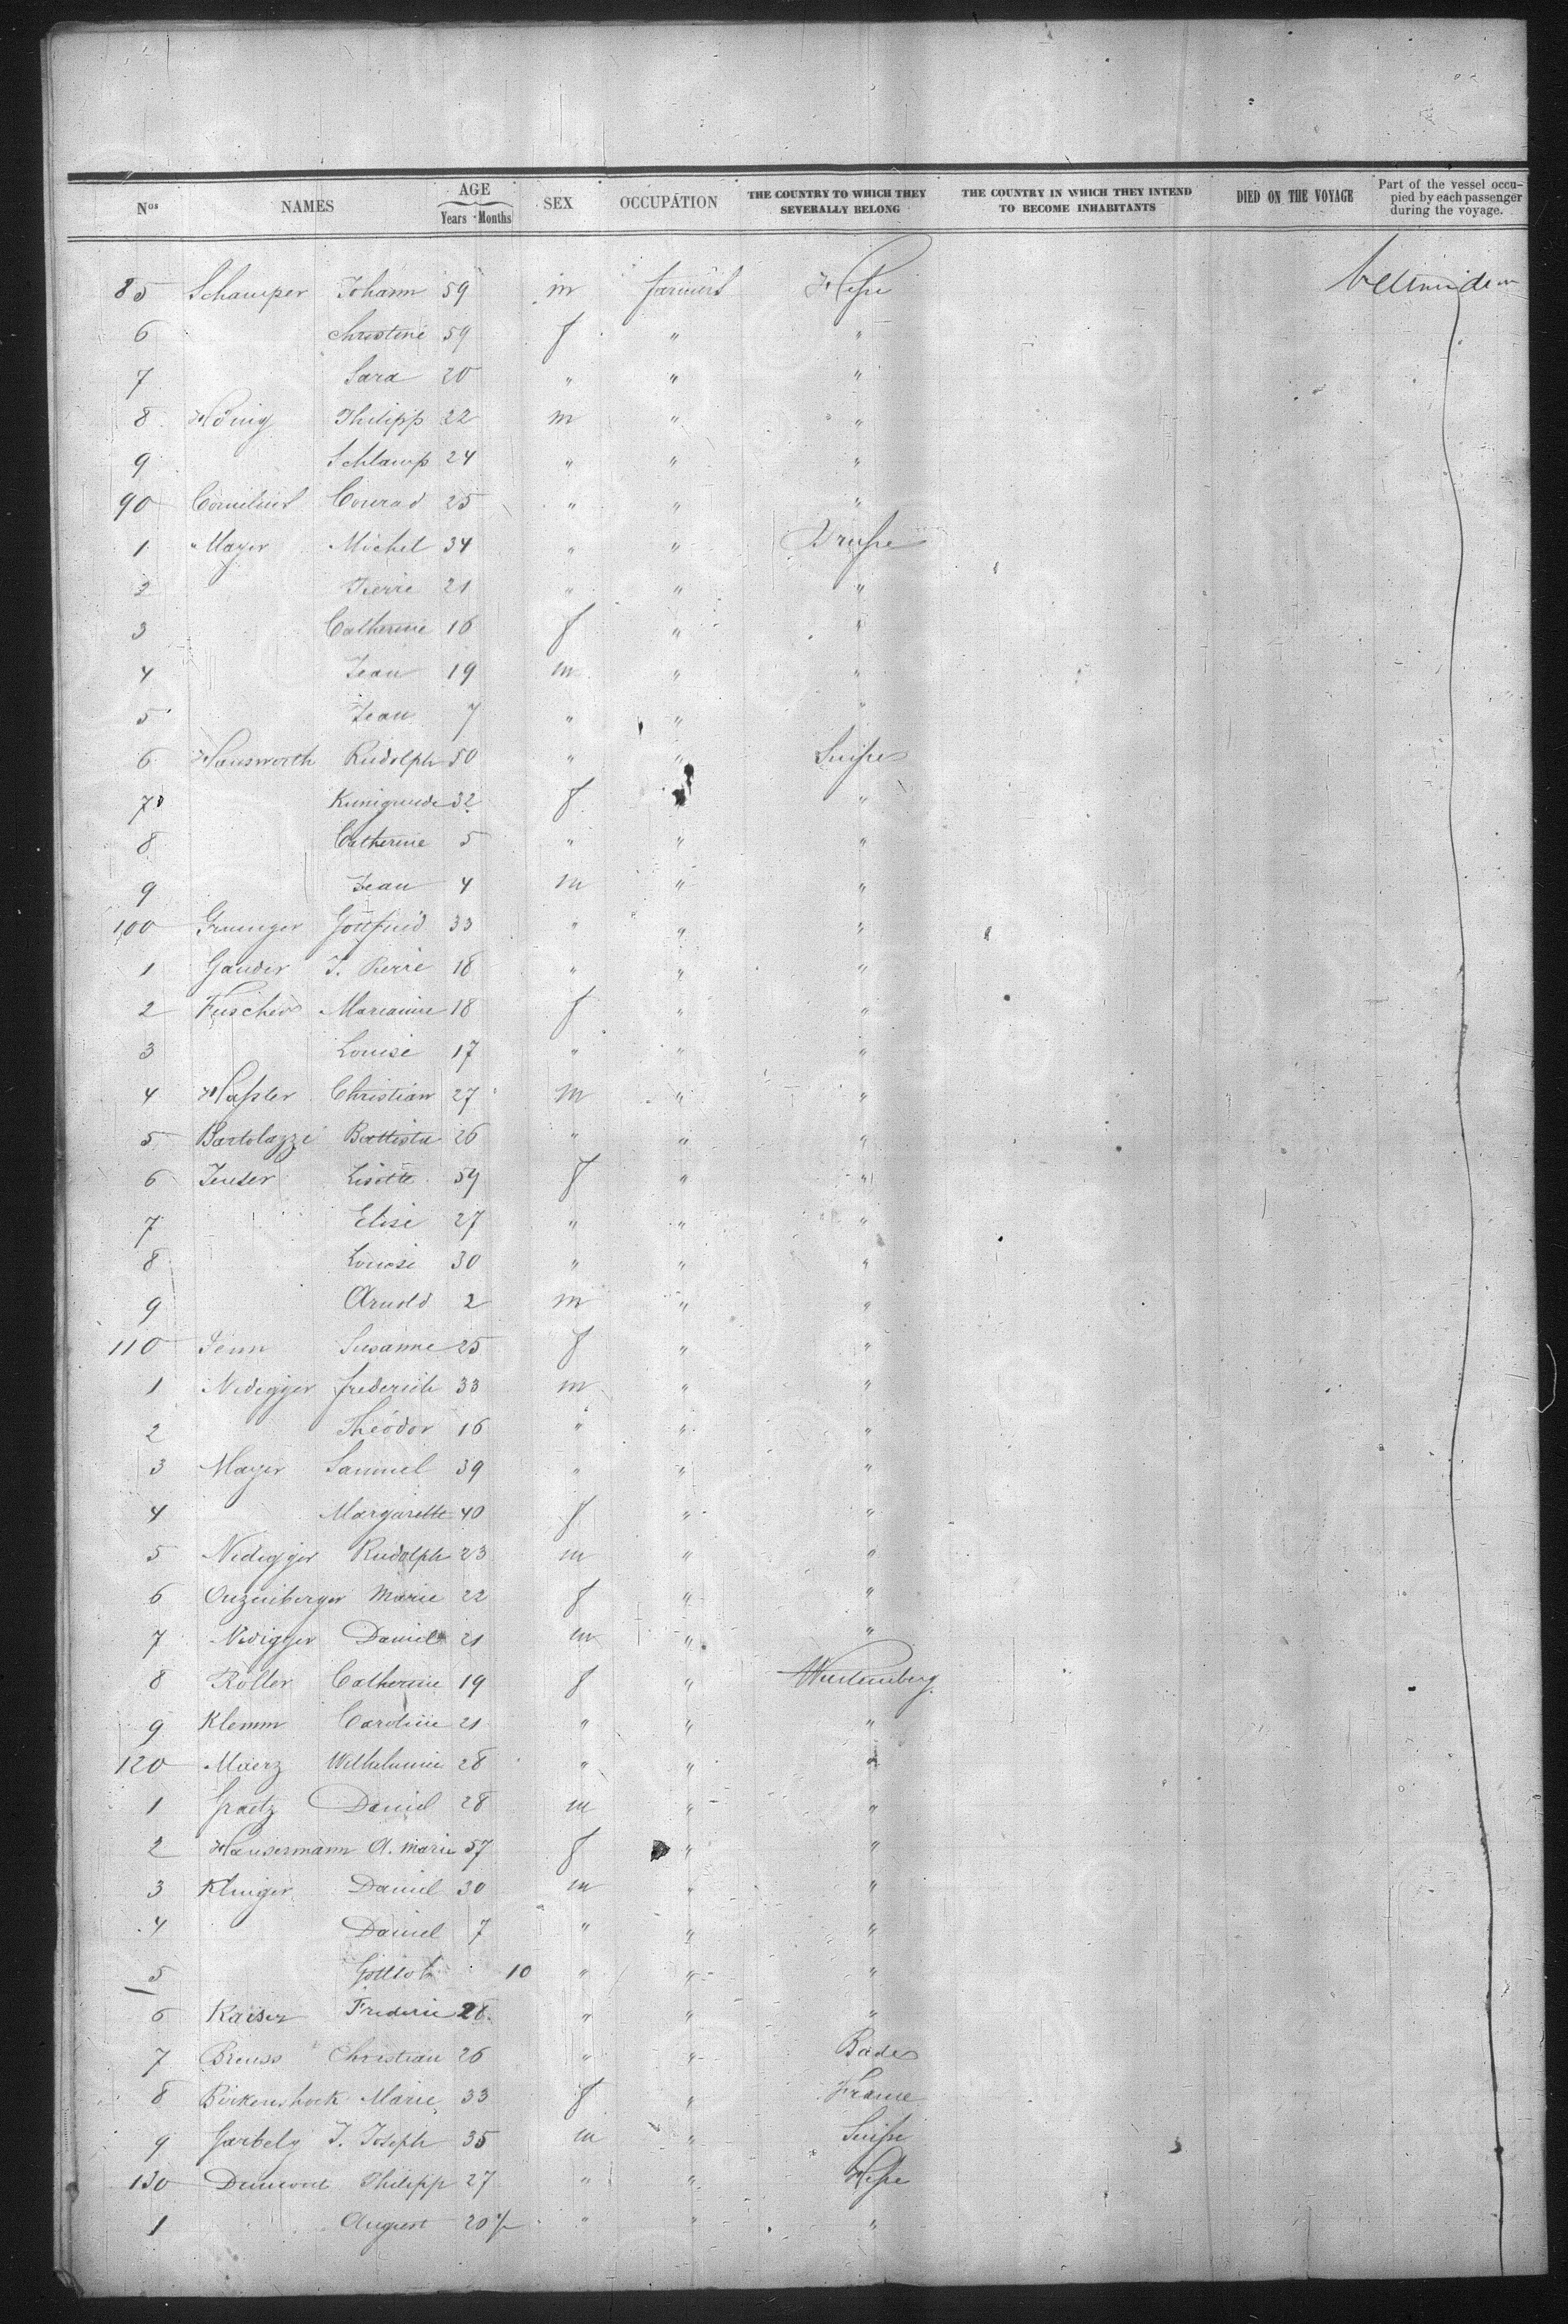 Nos NAMES AGE Years Months SEX OCCUPATION THE COUNTRY TO WHICH THEY SEVERALLY BELONG THE COUNTRY IN WHICH THEY INTEND TO BECOME INHABITANTS DIED ON THE VOYAGE Part of the vessel occupied by each passenger during the voyage.
85 Schamper Johann 59 m farmers Hesse
6 Christine 59 f " "
7 Sara 20 " " "
8 Hönig Philipp 22 m " "
9 Schlamp 24 " " "
90 Cornelius Conrad 25 " " "
1 Mayer Michel 34 " " Prusse
2 Pierre 21 " " "
3 Catherine 16 f " "
4 Jean 19 m " "
5 Jean 7 " " "
6 Hausworth Rudolph 50 " " Suisse
7 Kunigunde 32 f "
8 Catherine 5 " " "
9 Jean 4 m " "
100 Gottfried 33 " " "
1 Gander J. Pierre 18 " " "
2 Marianne 18 f " "
3 Louise 17 " " "
4 Hassler Christian 27 m " "
5 Bartolazzi Battista 26 " " "
6 Lisette 59 f " "
7 Elise 27 " " "
8 Louise 30 " " "
9 Arnold 2 m " "
110 Susanne 25 f " "
1 Nidegger frederich 33 m " "
2 Théodor 16 " " "
3 Mayer Samuel 39 " " "
4 Margarette 40 f " "
5 Nidegger Rudolph 23 m " "
6 Marie 22 f " "
7 Nidigger Daniel 21 m " "
8 Roller Catherine 19 f " Wurtemberg
9 Klemm Caroline 21 " " "
120 Maerz Wilhelmine 28 " " "
1 Graetz Daniel 28 m " "
2 Hausermann A. Marie 57 f " "
3 Klinger Daniel 30 m " "
4 Daniel 7 " " "
5 Gottlob 10 " " "
6 Kaiser Frederic 26 " " "
7 Breuss Christian 26 " " Bade
8 Birkenstock Marie 33 f " France
9 Garbely J. Joseph 35 m " Suisse
130 Philipp 27 " " Hesse
1 August 20 " " "